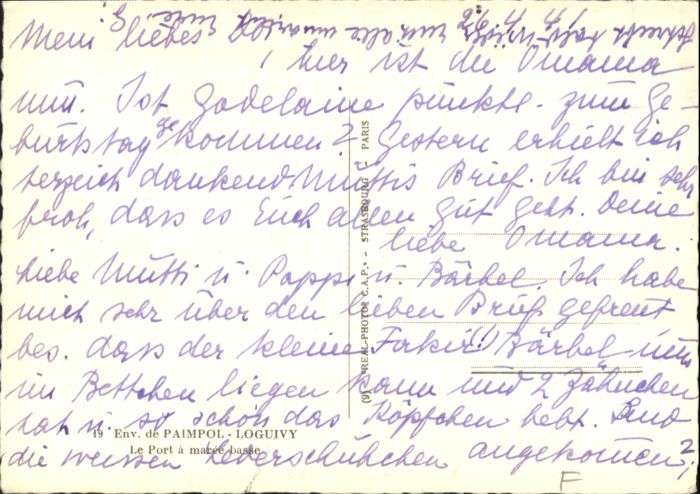 Mein liebes
26. 4. 4
hier ist die Omama
nun. Ist Godelaine pünktl. zum Ge-
burtstag gekommen? Gestern erhielt ich
herzlich dankend Muttis Brief. Ich bin sehr
froh, dass es Euch allen gut geht. Deine
liebe Omama.
Liebe Mutti u. Pappi u. Bärbel. Ich habe
mich sehr über den lieben Brief gefreut
bes. dass der kleine Fakir (!) Bärbel nun
im Bettchen liegen kann und 2 Zähnchen
hat u. so schön das Köpfchen hebt. Sind
die weissen Lederschühchen angekommen?
19 Env. de PAIMPOL - LOGUIVY
Le Port à marée basse
(9) "REAL-PHOTO" C.A.P. - STRASBOURG - PARIS
F